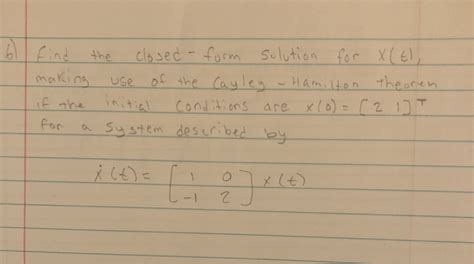 b) Find the closed-form solution for x(t),
making use of the Cayley-Hamilton theorem
if the initial conditions are x(0) = [2 1]ᵀ
for a system described by
ẋ(t) = [1 0; -1 2] x(t)